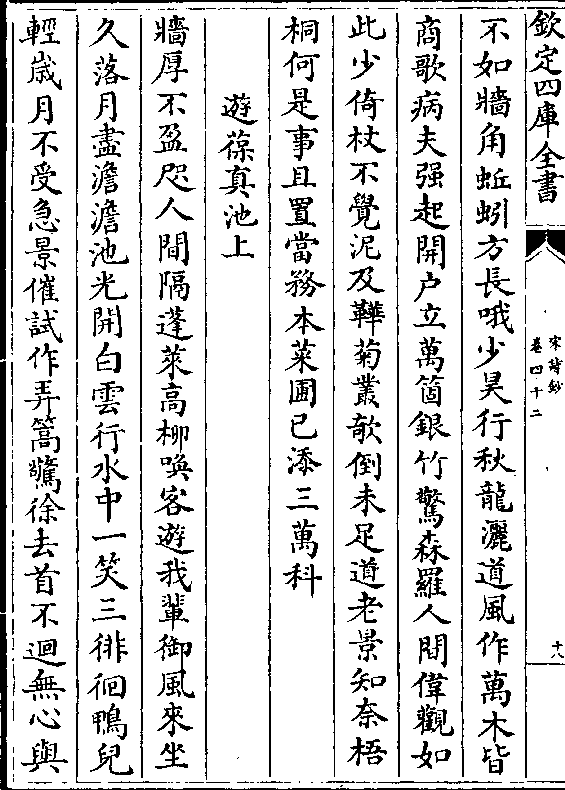 欽定四庫全書
宋詩鈔
卷四十二
十八
不如牆角蚯蚓方長哦少昊行秋龍灑道風作萬木皆
商歌病夫强起開户立萬箇銀竹驚森羅人間偉觀如
此少倚杖不覺泥及鞾菊叢欹倒未足道老景知奈梧
桐何是事且置當務本菜圃已添三萬科
遊葆真池上
牆厚不盈咫人間隔蓬萊高柳喚客遊我輩御風來坐
久落月盡澹澹池光開白雲行水中一笑三徘徊鴨兒
輕歲月不受急景催試作弄篙驚徐去首不迴無心與